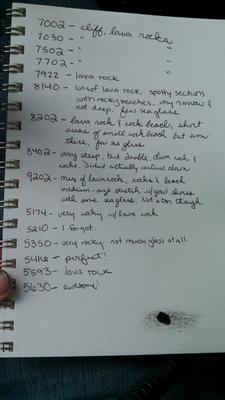 7002 - cliff, lava rocks
7030 - " "
7502 - " "
7702 - " "
7922 - lava rock
8140 - lots of lava rock, spotty sections
with rocky beaches, very narrow &
not deep. few sea glass
8202 - lava rock & rock beach, short
areas of small rock beach but even
there, few sea glass
8402 - very steep, but doable, lava rock &
rocks. Didn't actually venture down
9202 - mix of lava rock, rocks & beach
medium-size stretch w/ good choices
with some sea glass. Not a ton though.
5174 - very rocky w/ lava rock
5210 - I forgot.
5350 - very rocky not much glass at all.
5416 - perfect!
5593 - lava rock
5630 - awesome!